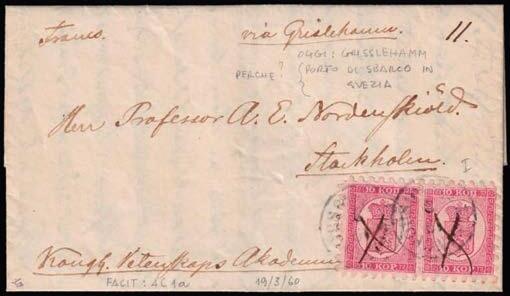 Franco. via Grislehamn. 11.
OGGI: GRISSLEHAMM
PERCHE? (PORTO DI SBARCO IN
SVEZIA
Herr Professor A. E. Nordenskiöld.
Stockholm.
I
10 KOP. 10 KOP.
Kongl. Vetenskaps Akademien
10 KOP. 10 KOP.
FACIT: 4C1a 19/3/60